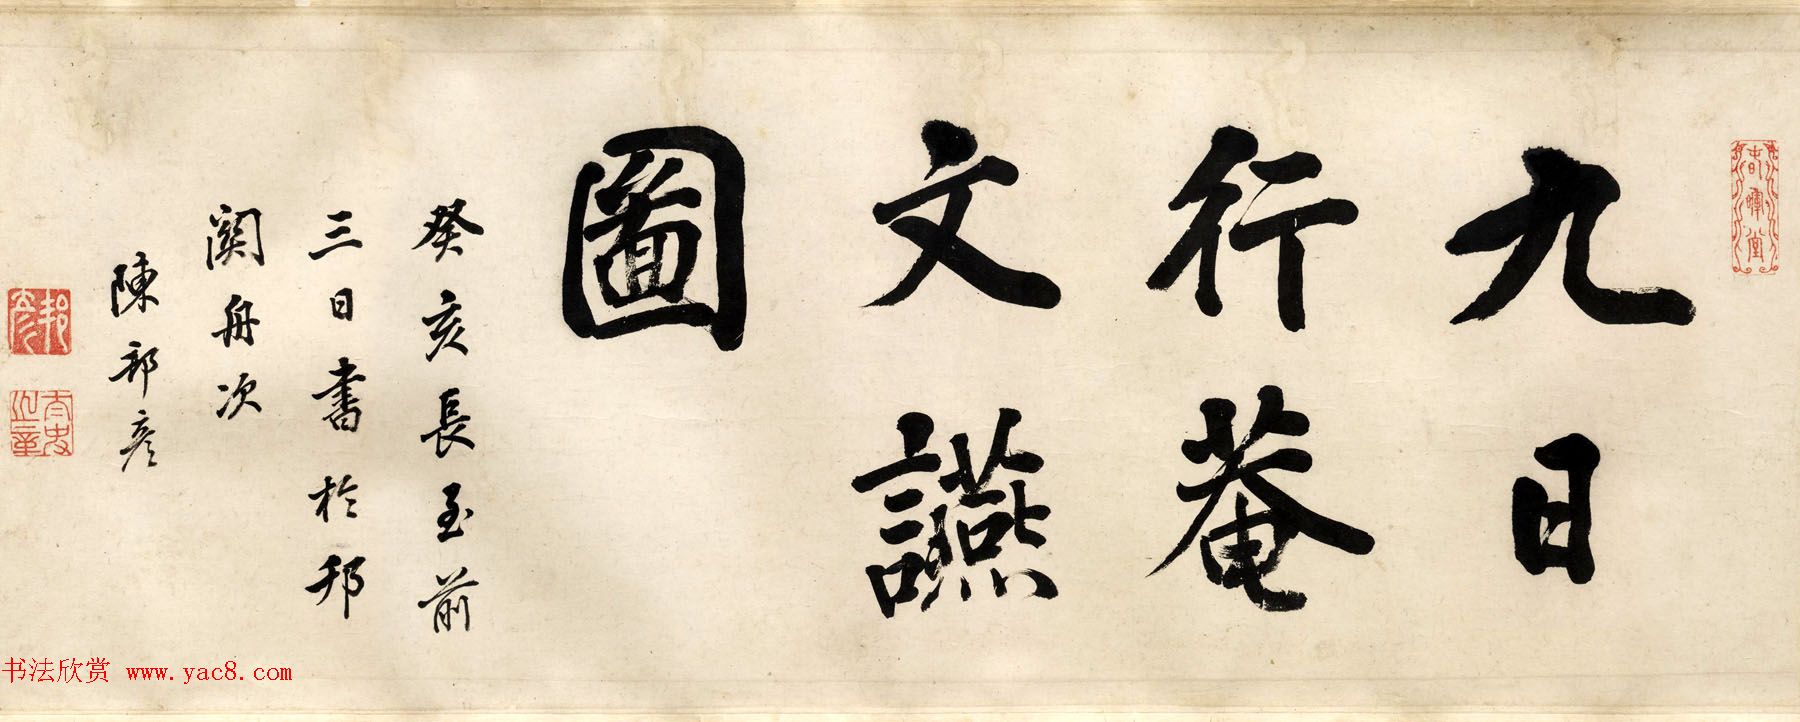 九日
行菴
文讌
圖
癸亥長至前
三日書於邗
關舟次
陳邦彦
邦彦
書法欣赏 www.yac8.com